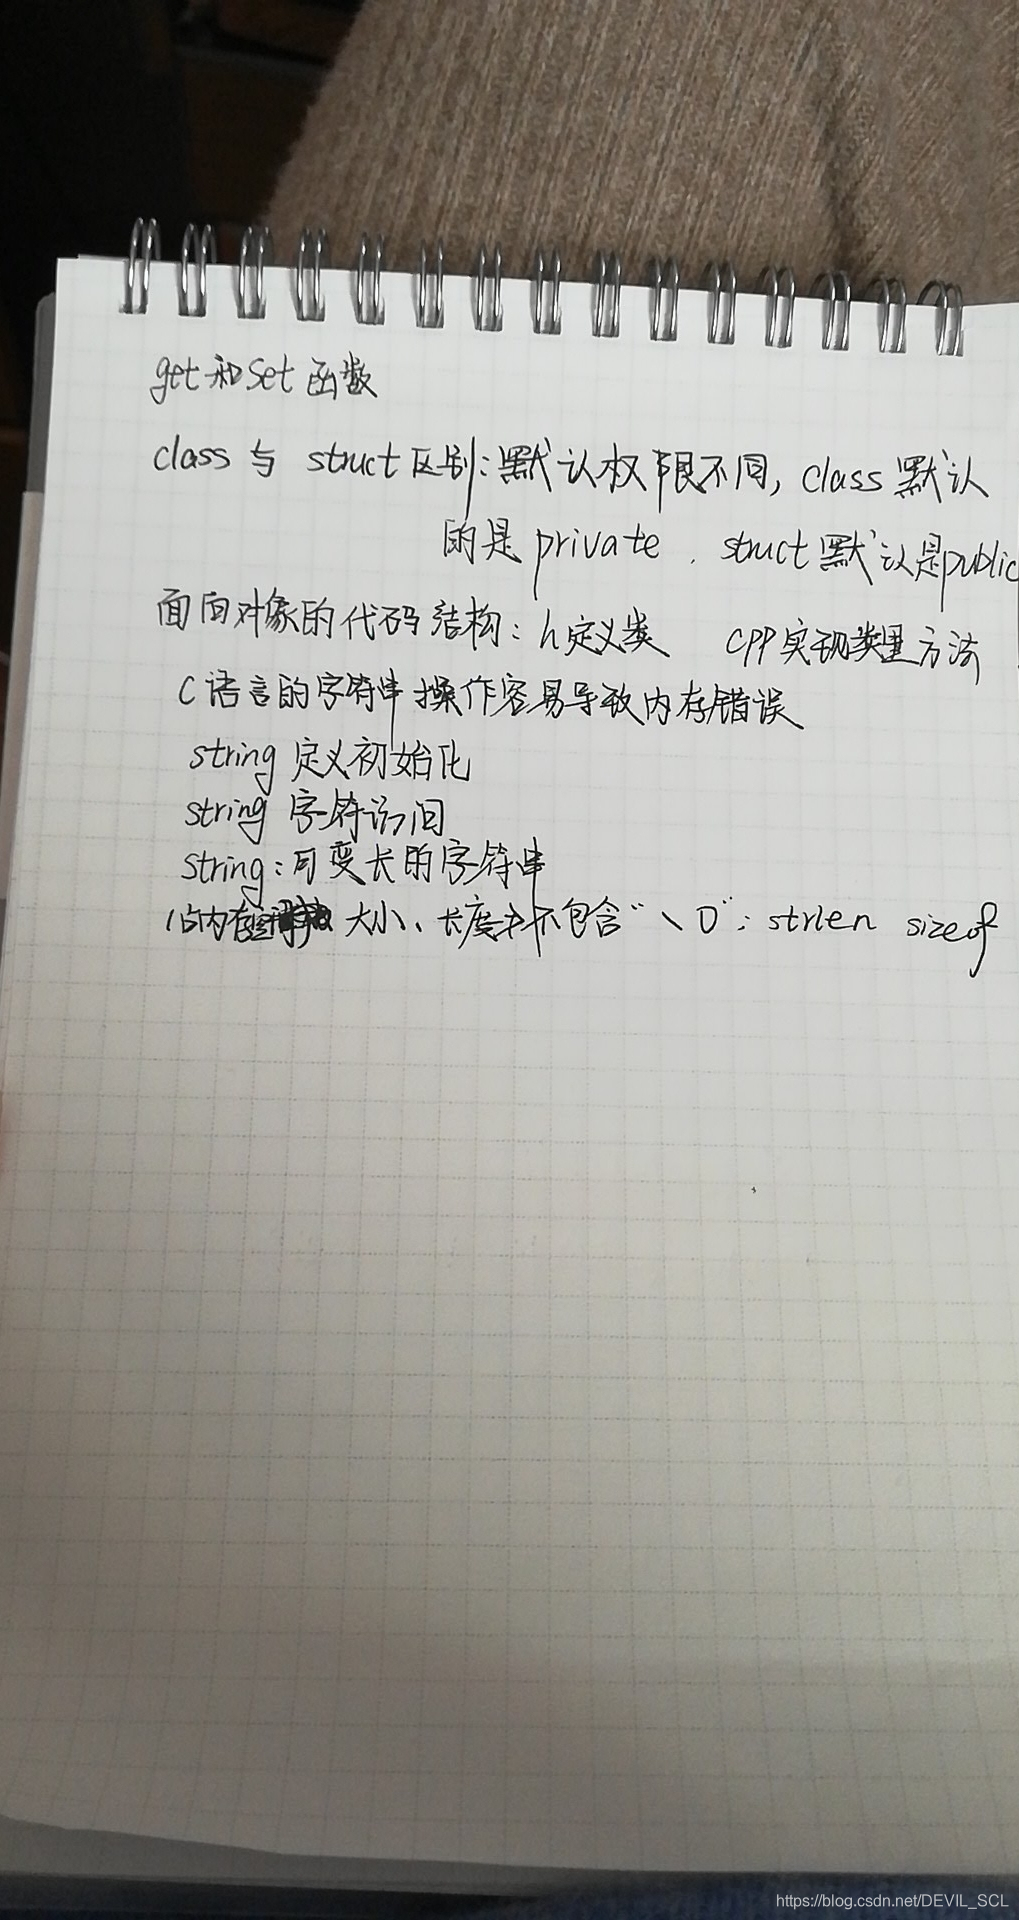 get和set函数
class 与 struct区别:默认权限不同, class默认
的是 private . struct默认是public
面向对象的代码结构: h定义类 cpp实现类里方法
C语言的字符串操作容易导致内存错误
string 定义初始化
string 字符访问
string:可变长的字符串
内存 大小、长度 不包含"\0": strlen sizeof
https://blog.csdn.net/DEVIL_SCL